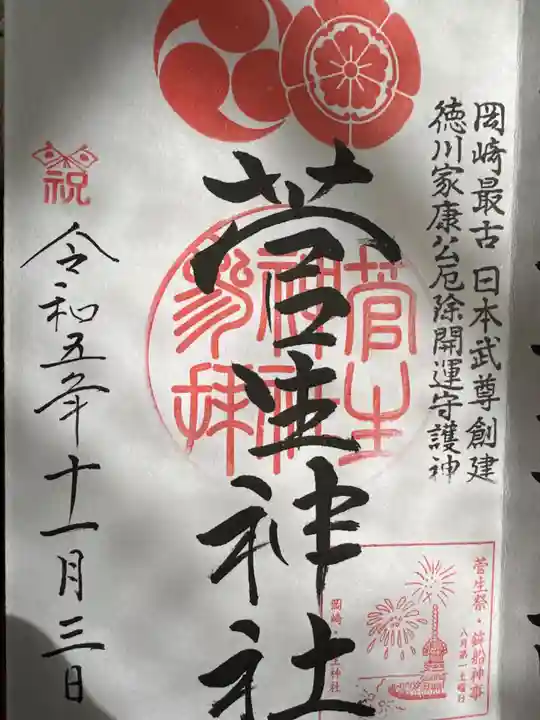 岡崎最古 日本武尊創建
徳川家康公厄除開運守護神
菅生神社
菅生
神社
参拝
祝
令和五年十一月三日
菅生祭・鉾船神事
八月第一土曜日
岡崎・
生神社